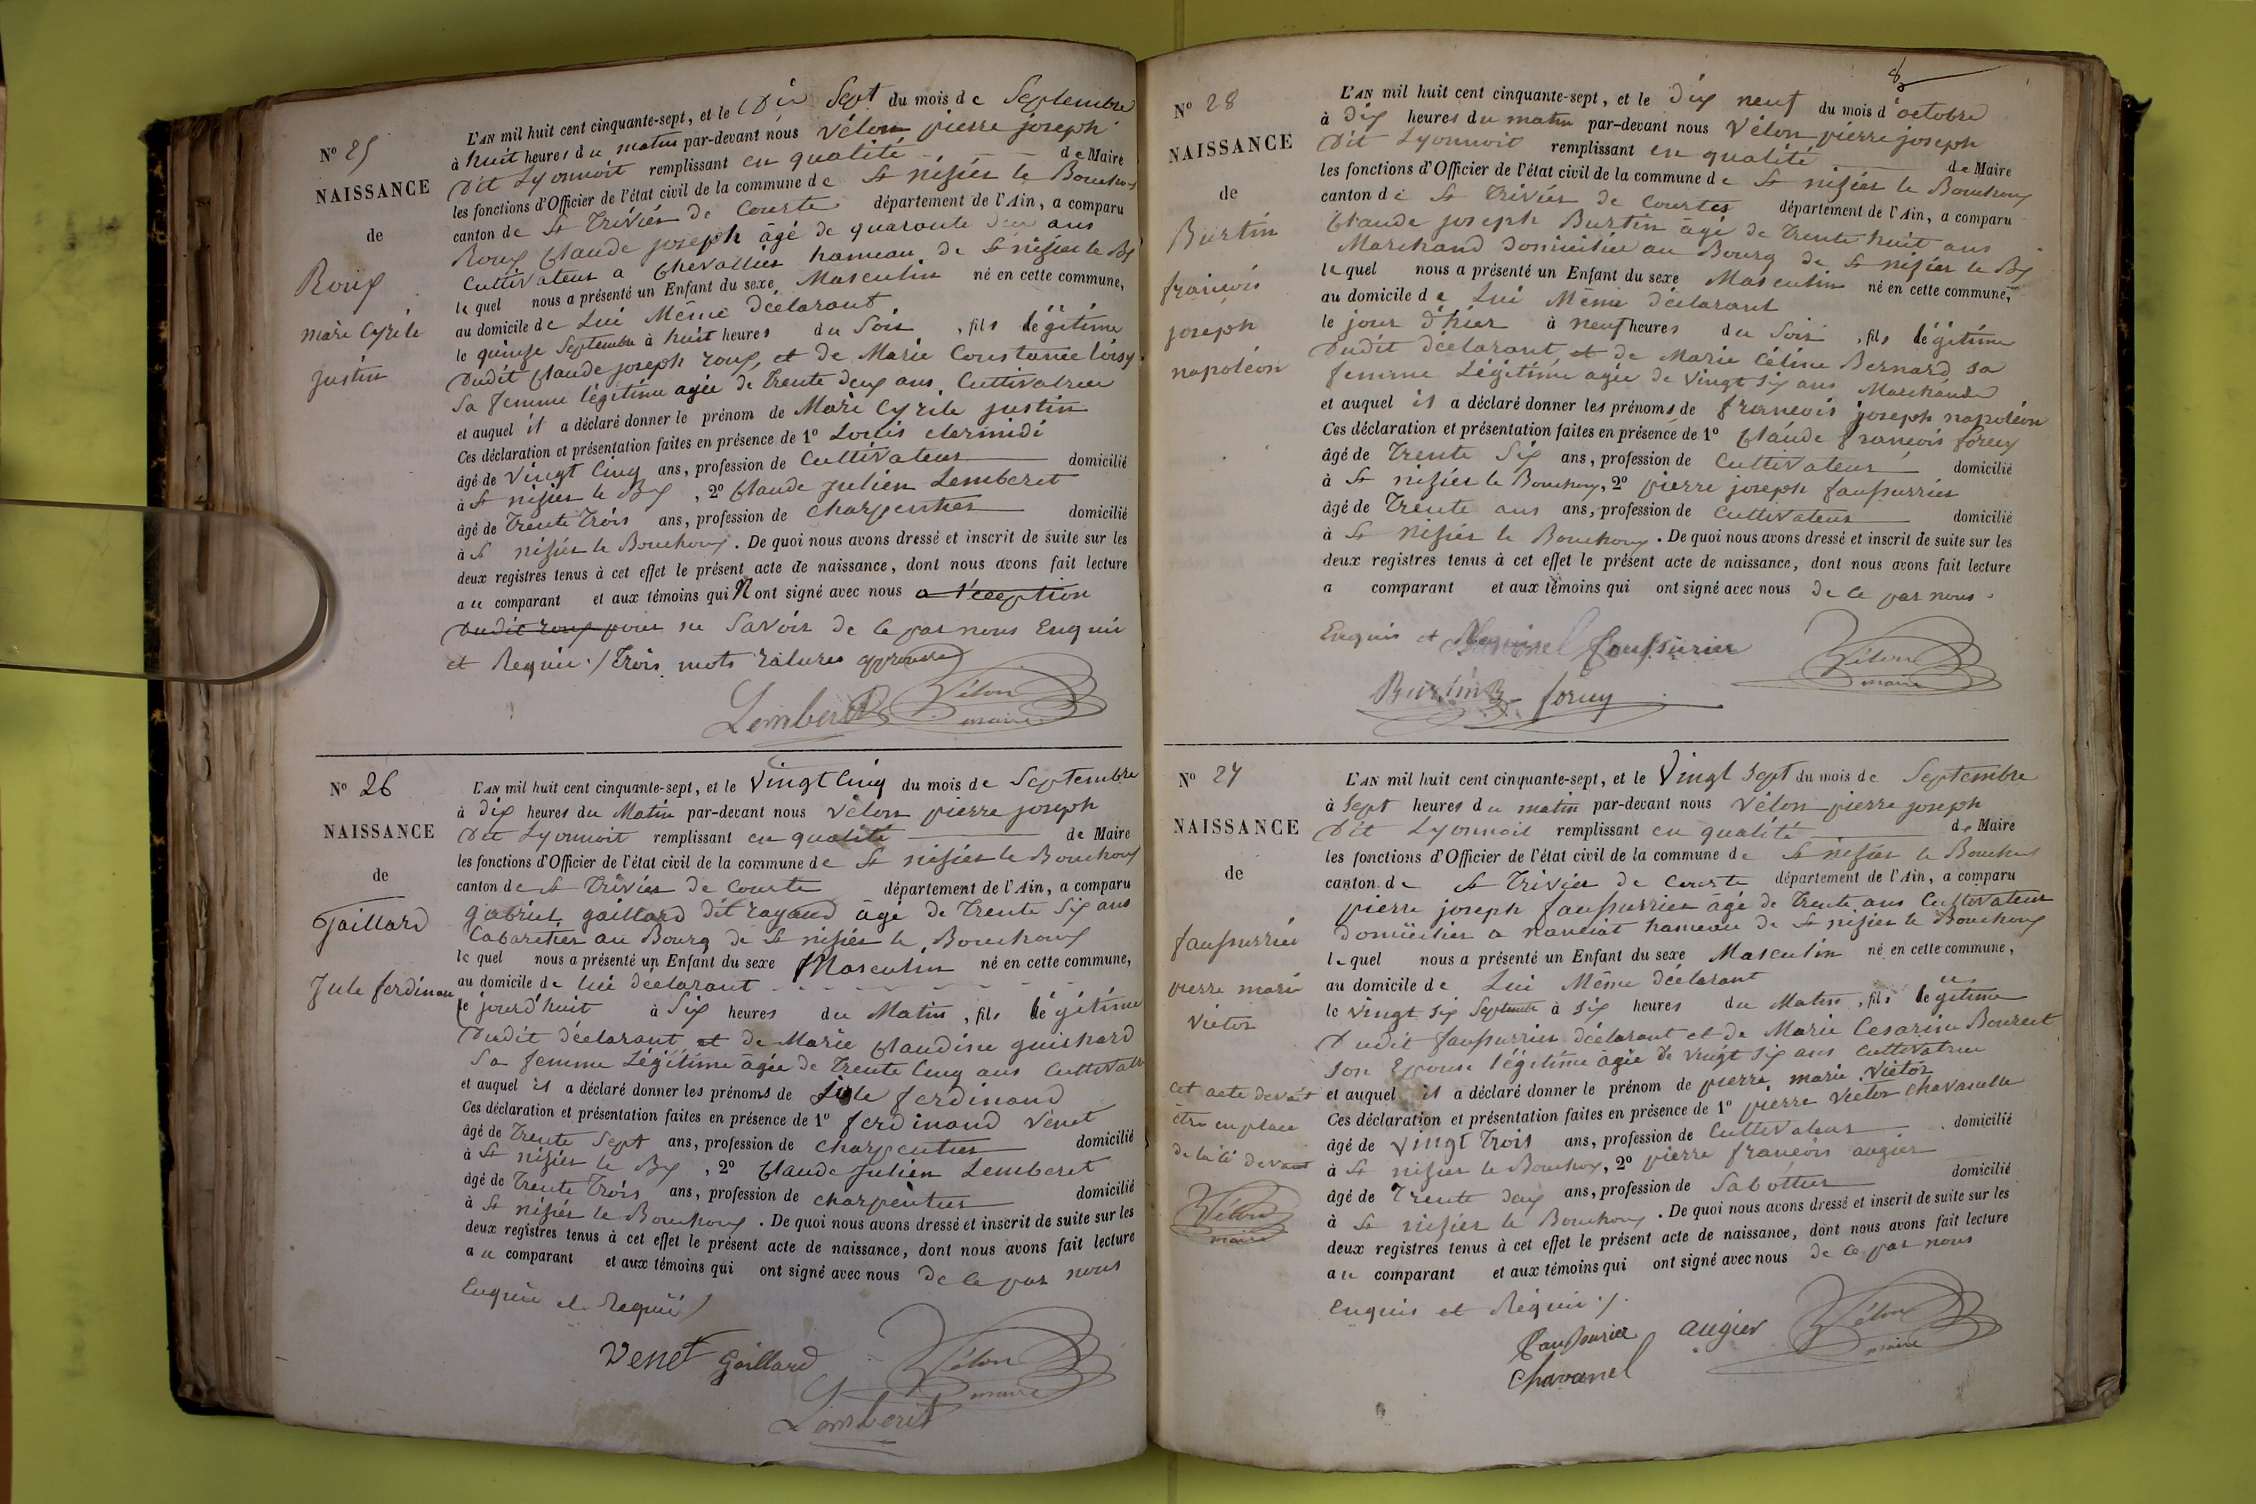 N° 25
NAISSANCE
de
Roux
marie Cyrile
justin
L'AN mil huit cent cinquante-sept, et le Dix Sept du mois de Septembre
à huit heures du matin par-devant nous Vélon pierre joseph
Dit Lyonnoit remplissant en qualité de Maire
les fonctions d'Officier de l'état civil de la commune de St nizier le Bouchoux
canton de St Trivier de Courte département de l'Ain, a comparu
Roux Claude joseph âgé de quarante deux ans
Cultivateur a Chevallier hameau de St nizier le Bx
lequel nous a présenté un Enfant du sexe Masculin né en cette commune,
au domicile de Lui Même déclarant
le quinze Septembre à huit heures du Soir, fils légitime
Dudit Claude joseph roux, et de Marie Constance loisy
Sa femme légitime agée de Trente deux ans Cultivatrice
et auquel il a déclaré donner le prénom de Marie Cyrile justin
Ces déclaration et présentation faites en présence de 1° Louis clermidi
âgé de Vingt Cinq ans, profession de Cultivateur domicilié
à St nizier le Bx, 2° Claude Julien Lemberet
âgé de Trente Trois ans, profession de Charpentier domicilié
à St nizier le Bouchoux. De quoi nous avons dressé et inscrit de suite sur les
deux registres tenus à cet effet le présent acte de naissance, dont nous avons fait lecture
au comparant et aux témoins qui N ont signé avec nous a l'éception
Dudit roux pour ne Savoir de ce par nous Enquis
et Requis ./ Trois mots ratures approuvé
Lemberet Vélon
maire
N° 26
NAISSANCE
de
Gaillard
Jule ferdinan
L'AN mil huit cent cinquante-sept, et le Vingt Cinq du mois de Septembre
à dix heures du Matin par-devant nous Vélon pierre joseph
Dit Lyonnoit remplissant en qualité de Maire
les fonctions d'Officier de l'état civil de la commune de St nizier le Bouchoux
canton de St Trivier de Courte département de l'Ain, a comparu
gabriel gaillard dit rayaud âgé de Trente Six ans
Cabaretier au Bourg de St nizier le Bouchoux
lequel nous a présenté un Enfant du sexe Masculin né en cette commune,
au domicile de lui déclarant
le jourd'huit à Six heures du Matin, fils légitime
Dudit déclarant et de Marie Claudine guichard
Sa femme Légitime âgée de Trente Cinq ans Cultivatr
et auquel il a déclaré donner les prénoms de jule ferdinand
Ces déclaration et présentation faites en présence de 1° ferdinand Venet
âgé de Trente Sept ans, profession de charpentier domicilié
à St nizier le Bx, 2° Claude Julien Lemberet
âgé de Trente Trois ans, profession de charpentier domicilié
à St nizier le Bouchoux. De quoi nous avons dressé et inscrit de suite sur les
deux registres tenus à cet effet le présent acte de naissance, dont nous avons fait lecture
au comparant et aux témoins qui ont signé avec nous de ce par nous
Enquis et Requis /
Venet Gaillard Vélon
maire
Lemberet
8
N° 28
NAISSANCE
de
Burtin
françois
joseph
napoléon
L'AN mil huit cent cinquante-sept, et le dix neuf du mois d'octobre
à dix heures du matin par-devant nous Vélon pierre joseph
Dit Lyonnoit remplissant en qualité de Maire
les fonctions d'Officier de l'état civil de la commune de St nizier le Bouchoux
canton de St Trivier de Courtes département de l'Ain, a comparu
Claude joseph Burtin âgé de Trente huit ans
Marchand domicilié au Bourg de St nizier le Bx
lequel nous a présenté un Enfant du sexe Masculin né en cette commune,
au domicile de Lui Même déclarant
le jour d'hier à neuf heures du Soir, fils légitime
Dudit déclarant, et de Marie Céline Bernard sa
femme Légitime agée de Vingt Six ans Marchande
et auquel il a déclaré donner les prénoms de françois joseph napoléon
Ces déclaration et présentation faites en présence de 1° Claude françois foray
âgé de Trente Six ans, profession de Cultivateur domicilié
à St nizier le Bouchoux, 2° pierre joseph faussurrier
âgé de Trente ans ans, profession de Cultivateur domicilié
à St nizier le Bouchoux. De quoi nous avons dressé et inscrit de suite sur les
deux registres tenus à cet effet le présent acte de naissance, dont nous avons fait lecture
a comparant et aux témoins qui ont signé avec nous de ce par nous
Enquis et faussurier Vélon
maire
Burtin foray
N° 27
NAISSANCE
de
faussurrier
pierre marie
Victor
cet acte devait
etre en place
de celui devant
Vélon
maire
L'AN mil huit cent cinquante-sept, et le Vingt Sept du mois de Septembre
à Sept heures du matin par-devant nous Vélon pierre joseph
Dit Lyonnoit remplissant en qualité de Maire
les fonctions d'Officier de l'état civil de la commune de St nizier le Bouchoux
canton de St Trivier de Courte département de l'Ain, a comparu
pierre joseph faussurrier âgé de Trente ans Cultivateur
domicilier a nanciat hameau de St nizier le Bouchoux
lequel nous a présenté un Enfant du sexe Masculin né en cette commune,
au domicile de Lui Même déclarant
le vingt six Septembre à six heures du Matin, fils légitime
Dudit faussurrier déclarant et de Marie Cesarine Bourcet
Son Epouse légitime âgée de vingt six ans Cultivatrice
et auquel il a déclaré donner le prénom de pierre marie Victor
Ces déclaration et présentation faites en présence de 1° pierre Victor Chavanelle
âgé de vingt Trois ans, profession de Cultivateur domicilié
à St nizier le Bouchoux, 2° pierre françois augier
âgé de Trente deux ans, profession de Sabottier domicilié
à St nizier le Bouchoux. De quoi nous avons dressé et inscrit de suite sur les
deux registres tenus à cet effet le présent acte de naissance, dont nous avons fait lecture
au comparant et aux témoins qui ont signé avec nous de ce par nous
Enquis et Réquis ./.
faussurier augier Vélon
maire
Chavanel